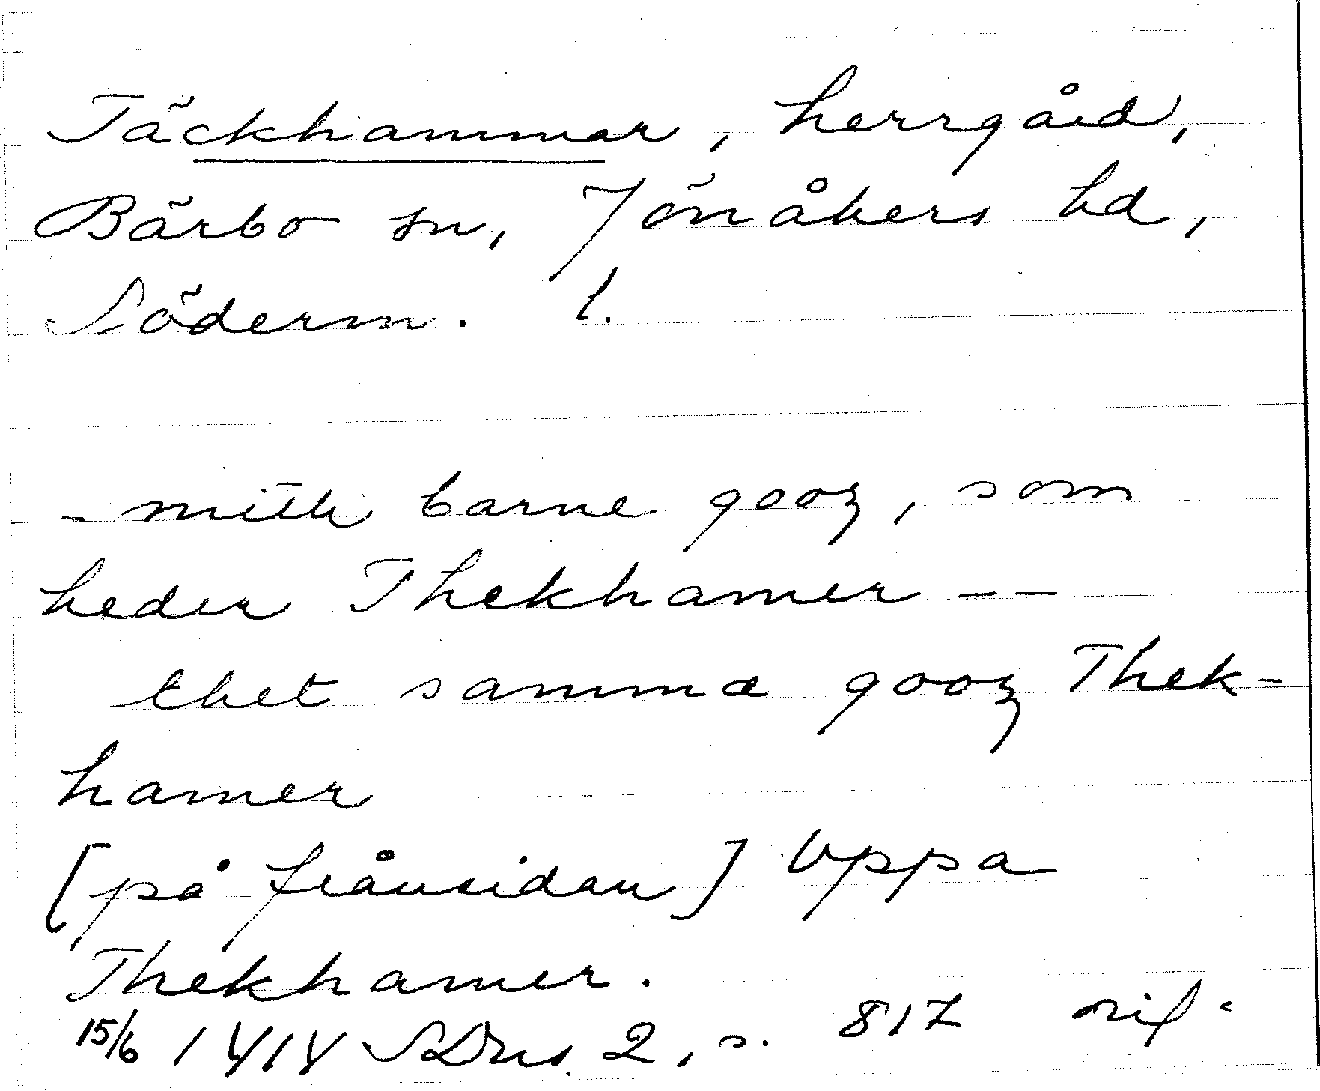 Täckhammar, herrgård,
Bärbo sn, Jönåkers hd,
Söderm. l.
- mith barne gooz, som
heder Thekhamer --
thet samma gooz Thek-
hamer
[på frånsidan] Vppa
Thekhamer.
15/6 1414 SDns 2, s. 817 orig.